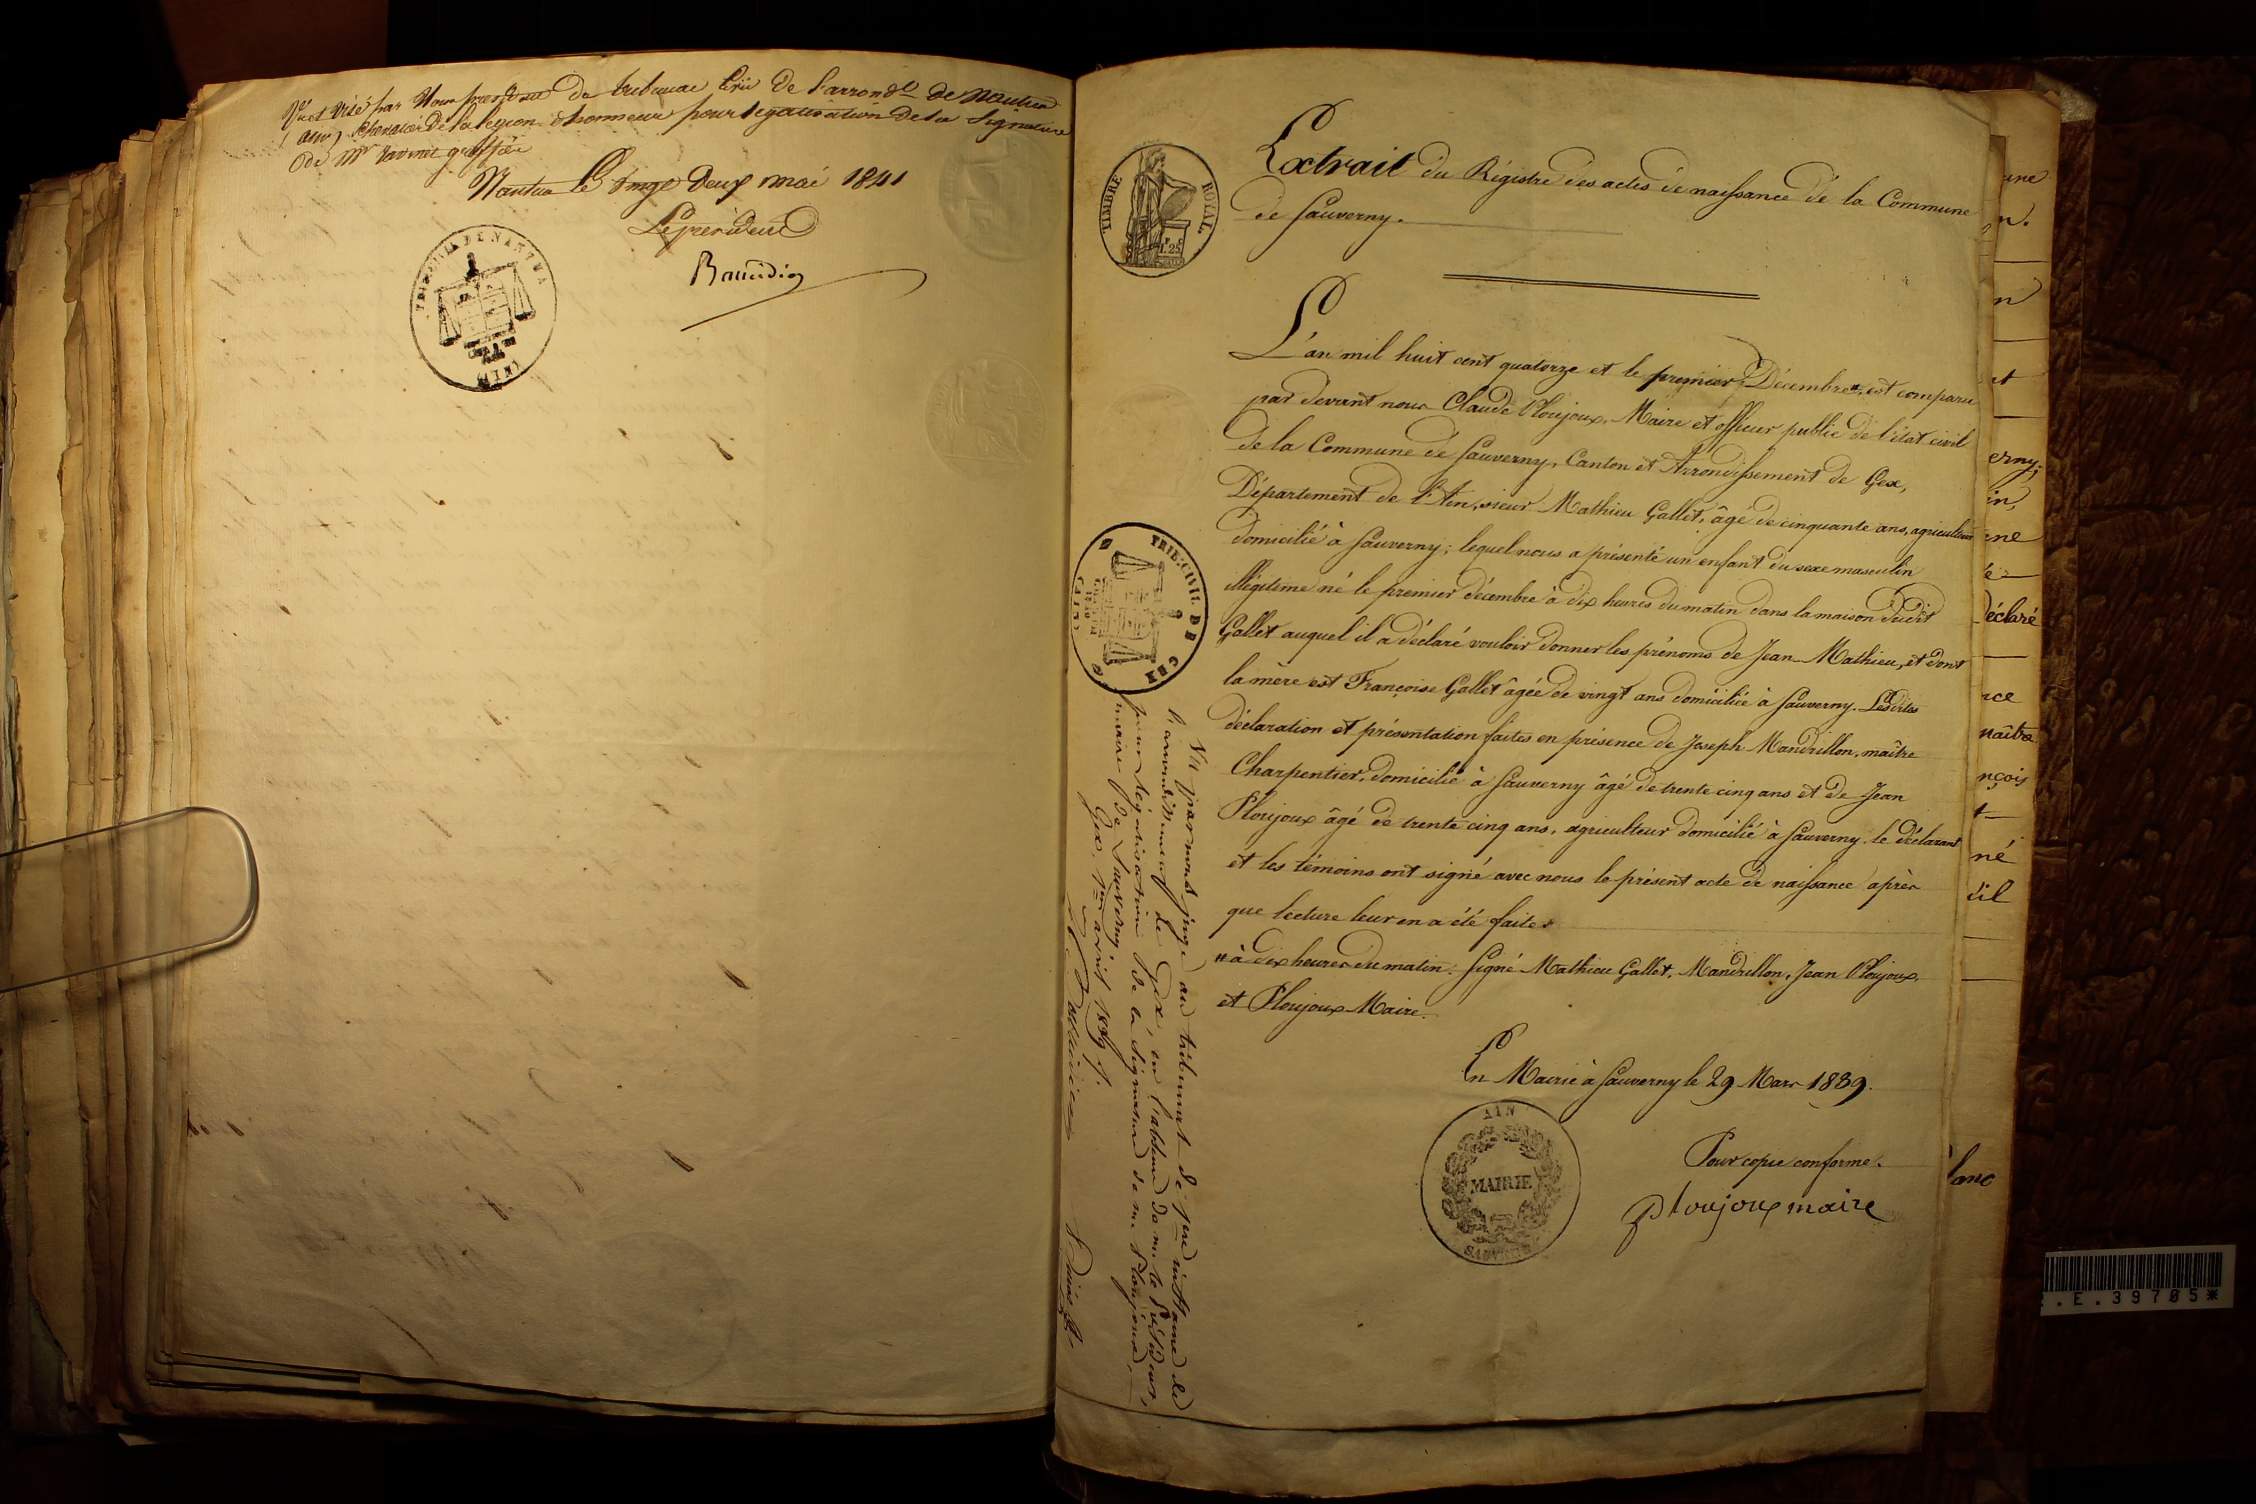 Vu et visé par Nous president du tribunal Civil de l'arrondt de Nantua
(ain) chevalier de la legion d'honneur pour legalisation de la Signature
de Mr greffier
Nantua le vingt Deux mai 1841
Le président
TRIBUNAL DE NANTUA
(AIN)
TIMBRE ROYAL
1.25
Extrait du Régistre des actes de naissance de la Commune
de Sauverny.
L'an mil huit cent quatorze et le premier Décembre #, est comparu
par devant nous Claude Ploujoux, Maire et officier public de l'état civil
de la Commune de Sauverny, Canton et Arrondissement de Gex,
Département de l'Ain, sieur Mathieu Gallet, âgé de cinquante ans, agriculteur
domicilié à Sauverny; lequel nous a présenté un enfant du sexe masculin
illégitime né le premier décembre à dix heures du matin dans la maison dudit
Gallet auquel il a déclaré vouloir donner les prénoms de Jean-Mathieu, et dont
la mère est Françoise Gallet âgée de vingt ans domiciliée à Sauverny. Lesdites
déclaration et présentation faites en présence de Joseph Mandrillon, maître
Charpentier, domicilié à Sauverny âgé de trente cinq ans et de Jean
Ploujoux âgé de trente cinq ans, agriculteur domicilié à Sauverny. le déclarant
et les témoins ont signé avec nous le présent acte de naissance après
que lecture leur en a été faite.
# à dix heures du matin. Signé Mathieu Gallet, Mandrillon, Jean Ploujoux,
et Ploujoux Maire.
En Mairie à Sauverny le 29 Mars 1839.
Pour copie conforme.
Ploujoux maire
AIN
MAIRIE
SAUVERNY
TRIB. CIVIL DE GEX
(AIN)
Vu par nous juge au tribunal de 1ere instance de
l'arrondissement de Gex, en l'absence de m. le Président,
pour légalisation de la signature de m. Ploujoux,
maire de Sauverny.
Gex, 1er avril 1839.
une
n.
n
et
erny;
in,
ne
é
déclaré
nce
maître
nçois
t
né
'il
lanc
.E.39705*